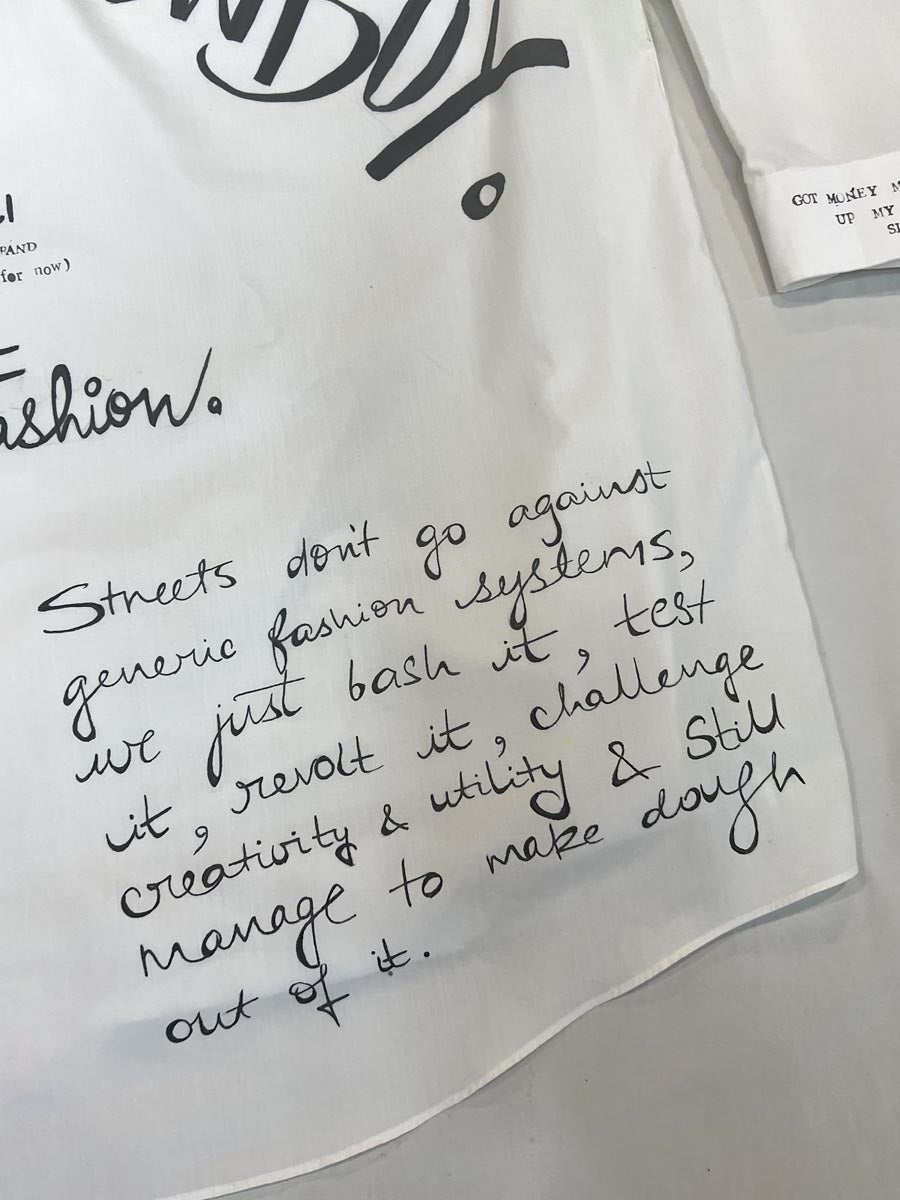 GOT MONEY
UP MY
for now)
Streets don't go against
generic fashion systems,
we just bash it, test
it, revolt it, challenge
creativity & utility & Still
manage to make dough
out of it.